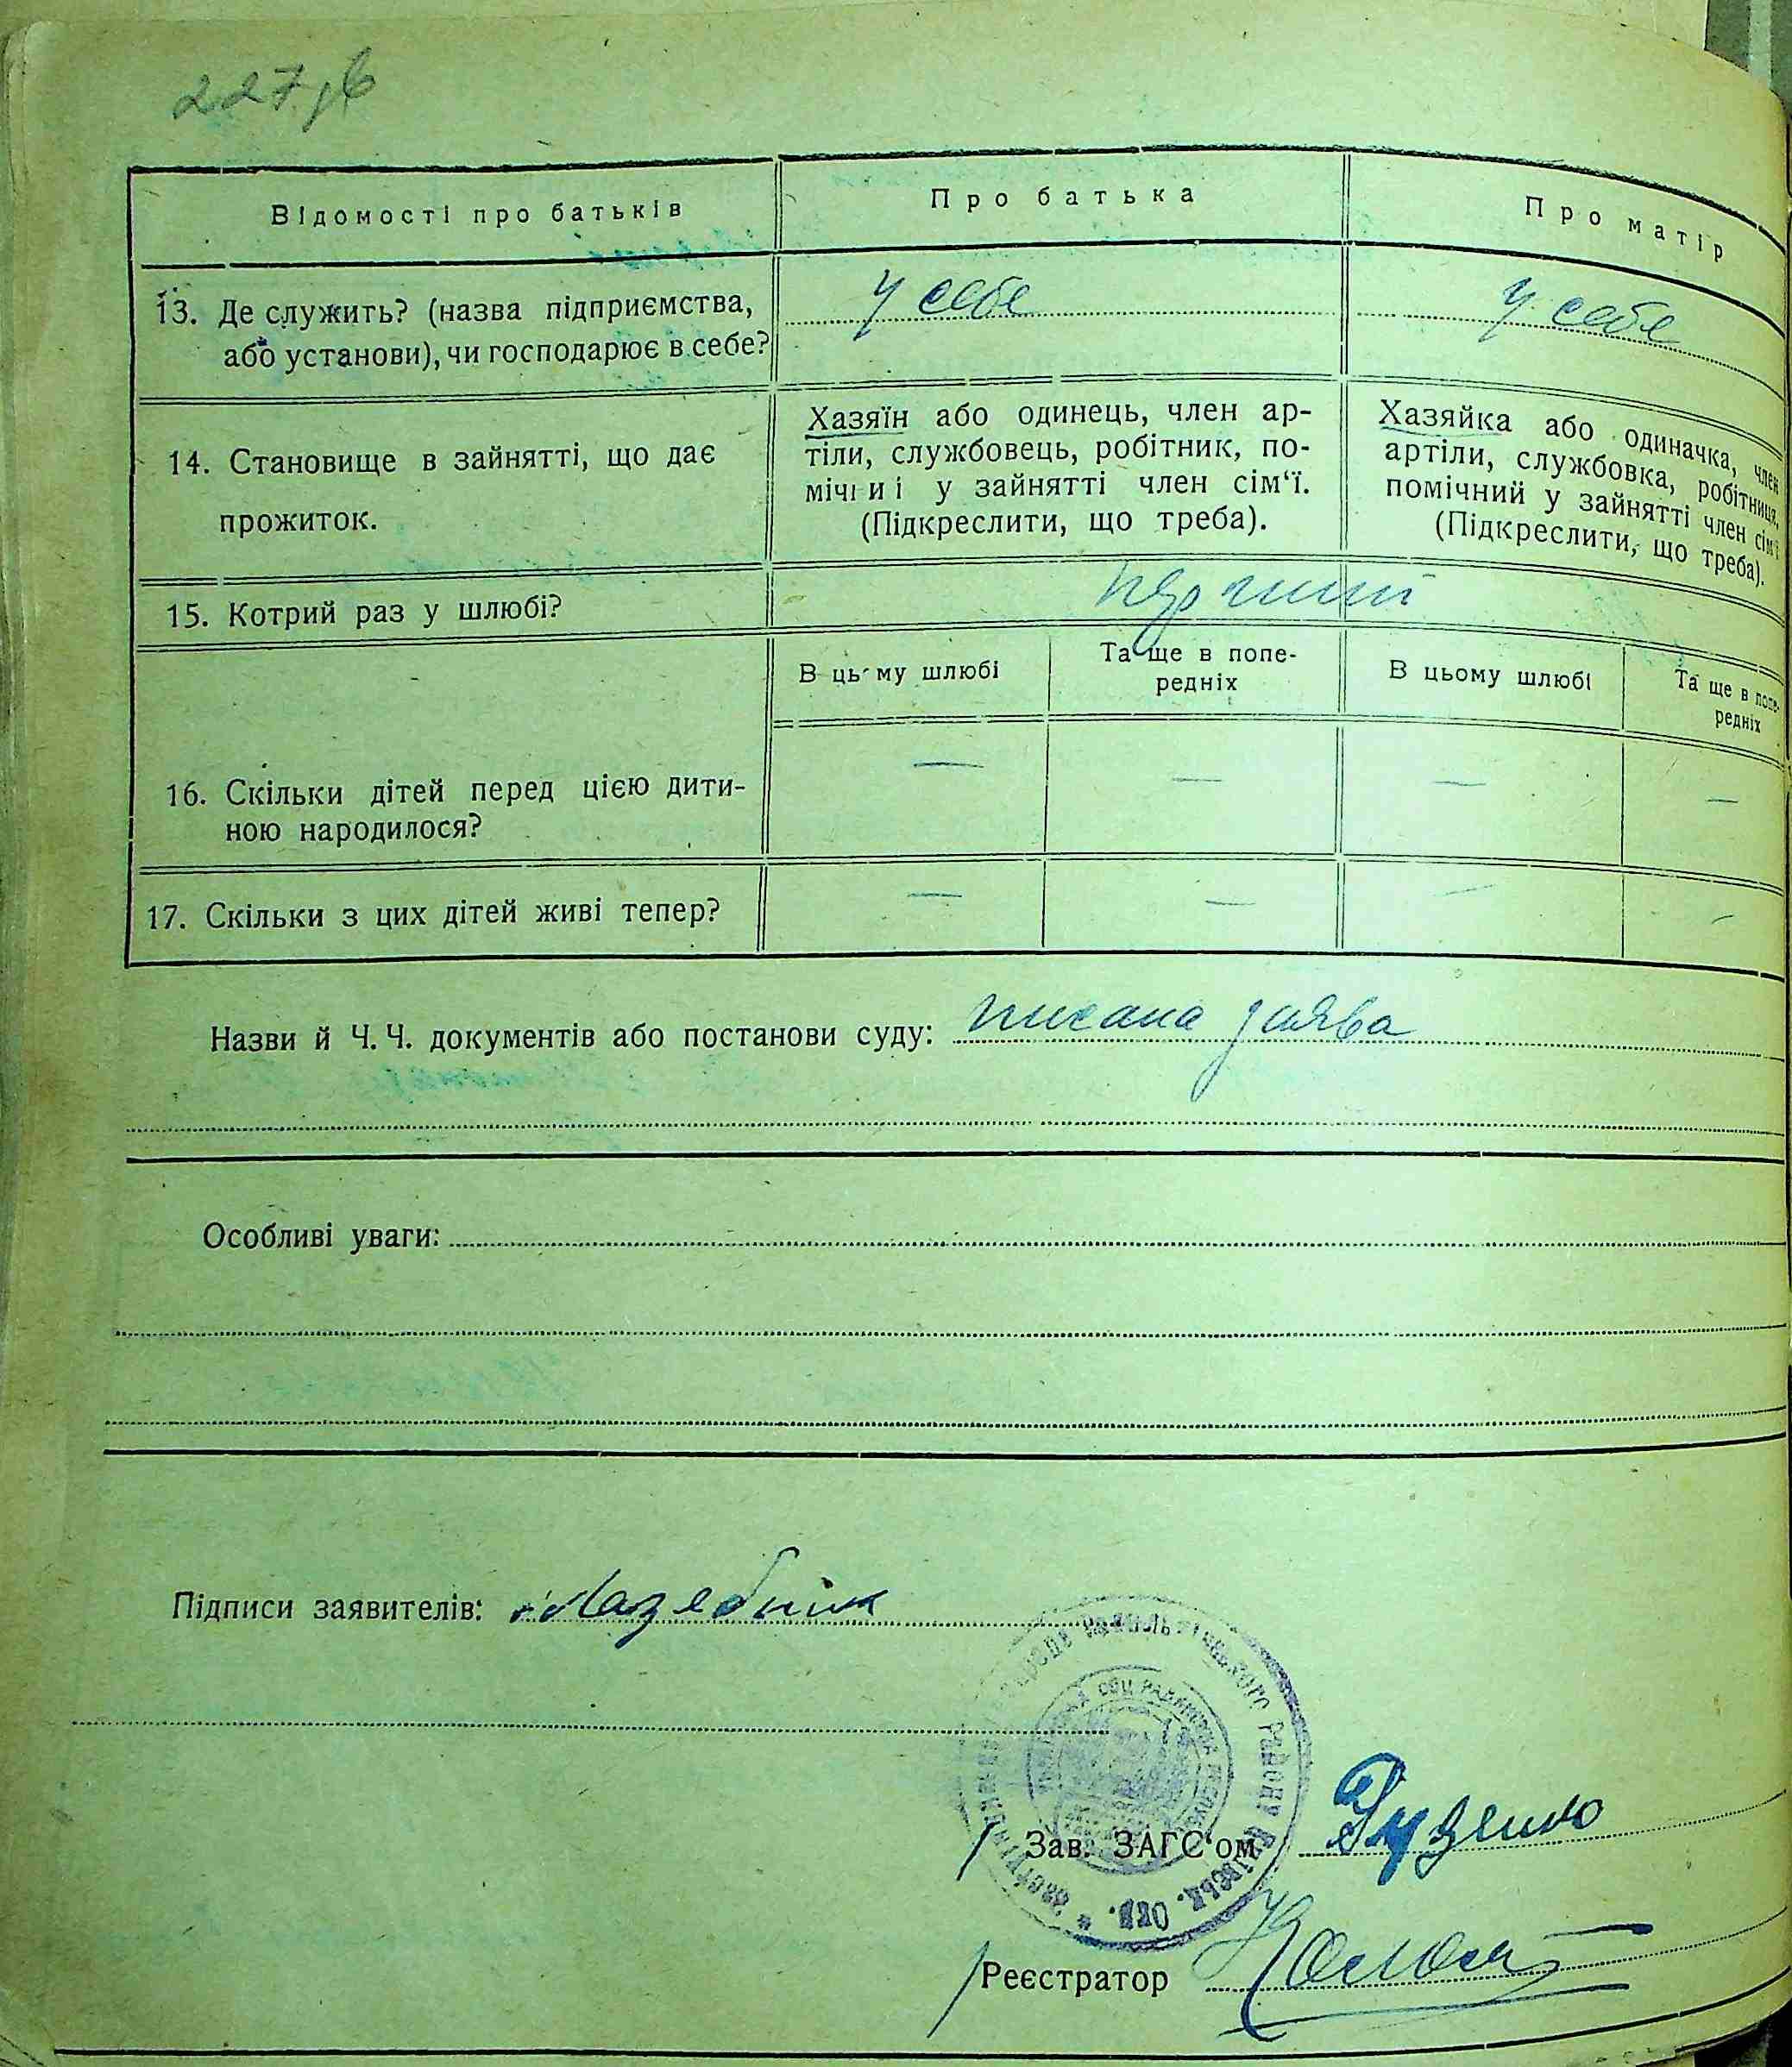 227зв
Відомості про батьків
Про батька
Про матір
13. Де служить? (назва підприємства,
або установи), чи господарює в себе?
у себе
у себе
14. Становище в зайнятті, що дає
прожиток.
Хазяїн або одинець, член ар-
тіли, службовець, робітник, по-
мічниі у зайнятті член сім‘ї.
(Підкреслити, що треба).
Хазяйка або одиначка, член
артіли, службовка, робітниця,
помічний у зайнятті член сім‘ї
(Підкреслити, що треба).
15. Котрий раз у шлюбі?
перший
В цьому шлюбі
Та ще в попе-
редніх
В цьому шлюбі
Та ще в попе-
редніх
16. Скільки дітей перед цією дити-
ною народилося?
— — — —
17. Скільки з цих дітей живі тепер?
— — — —
Назви й Ч. Ч. документів або постанови суду: писана заява
Особливі уваги:
Підписи заявителів: Лазебник
Району Київськ. Окр.
Зав. ЗАГС‘ом
Реєстратор